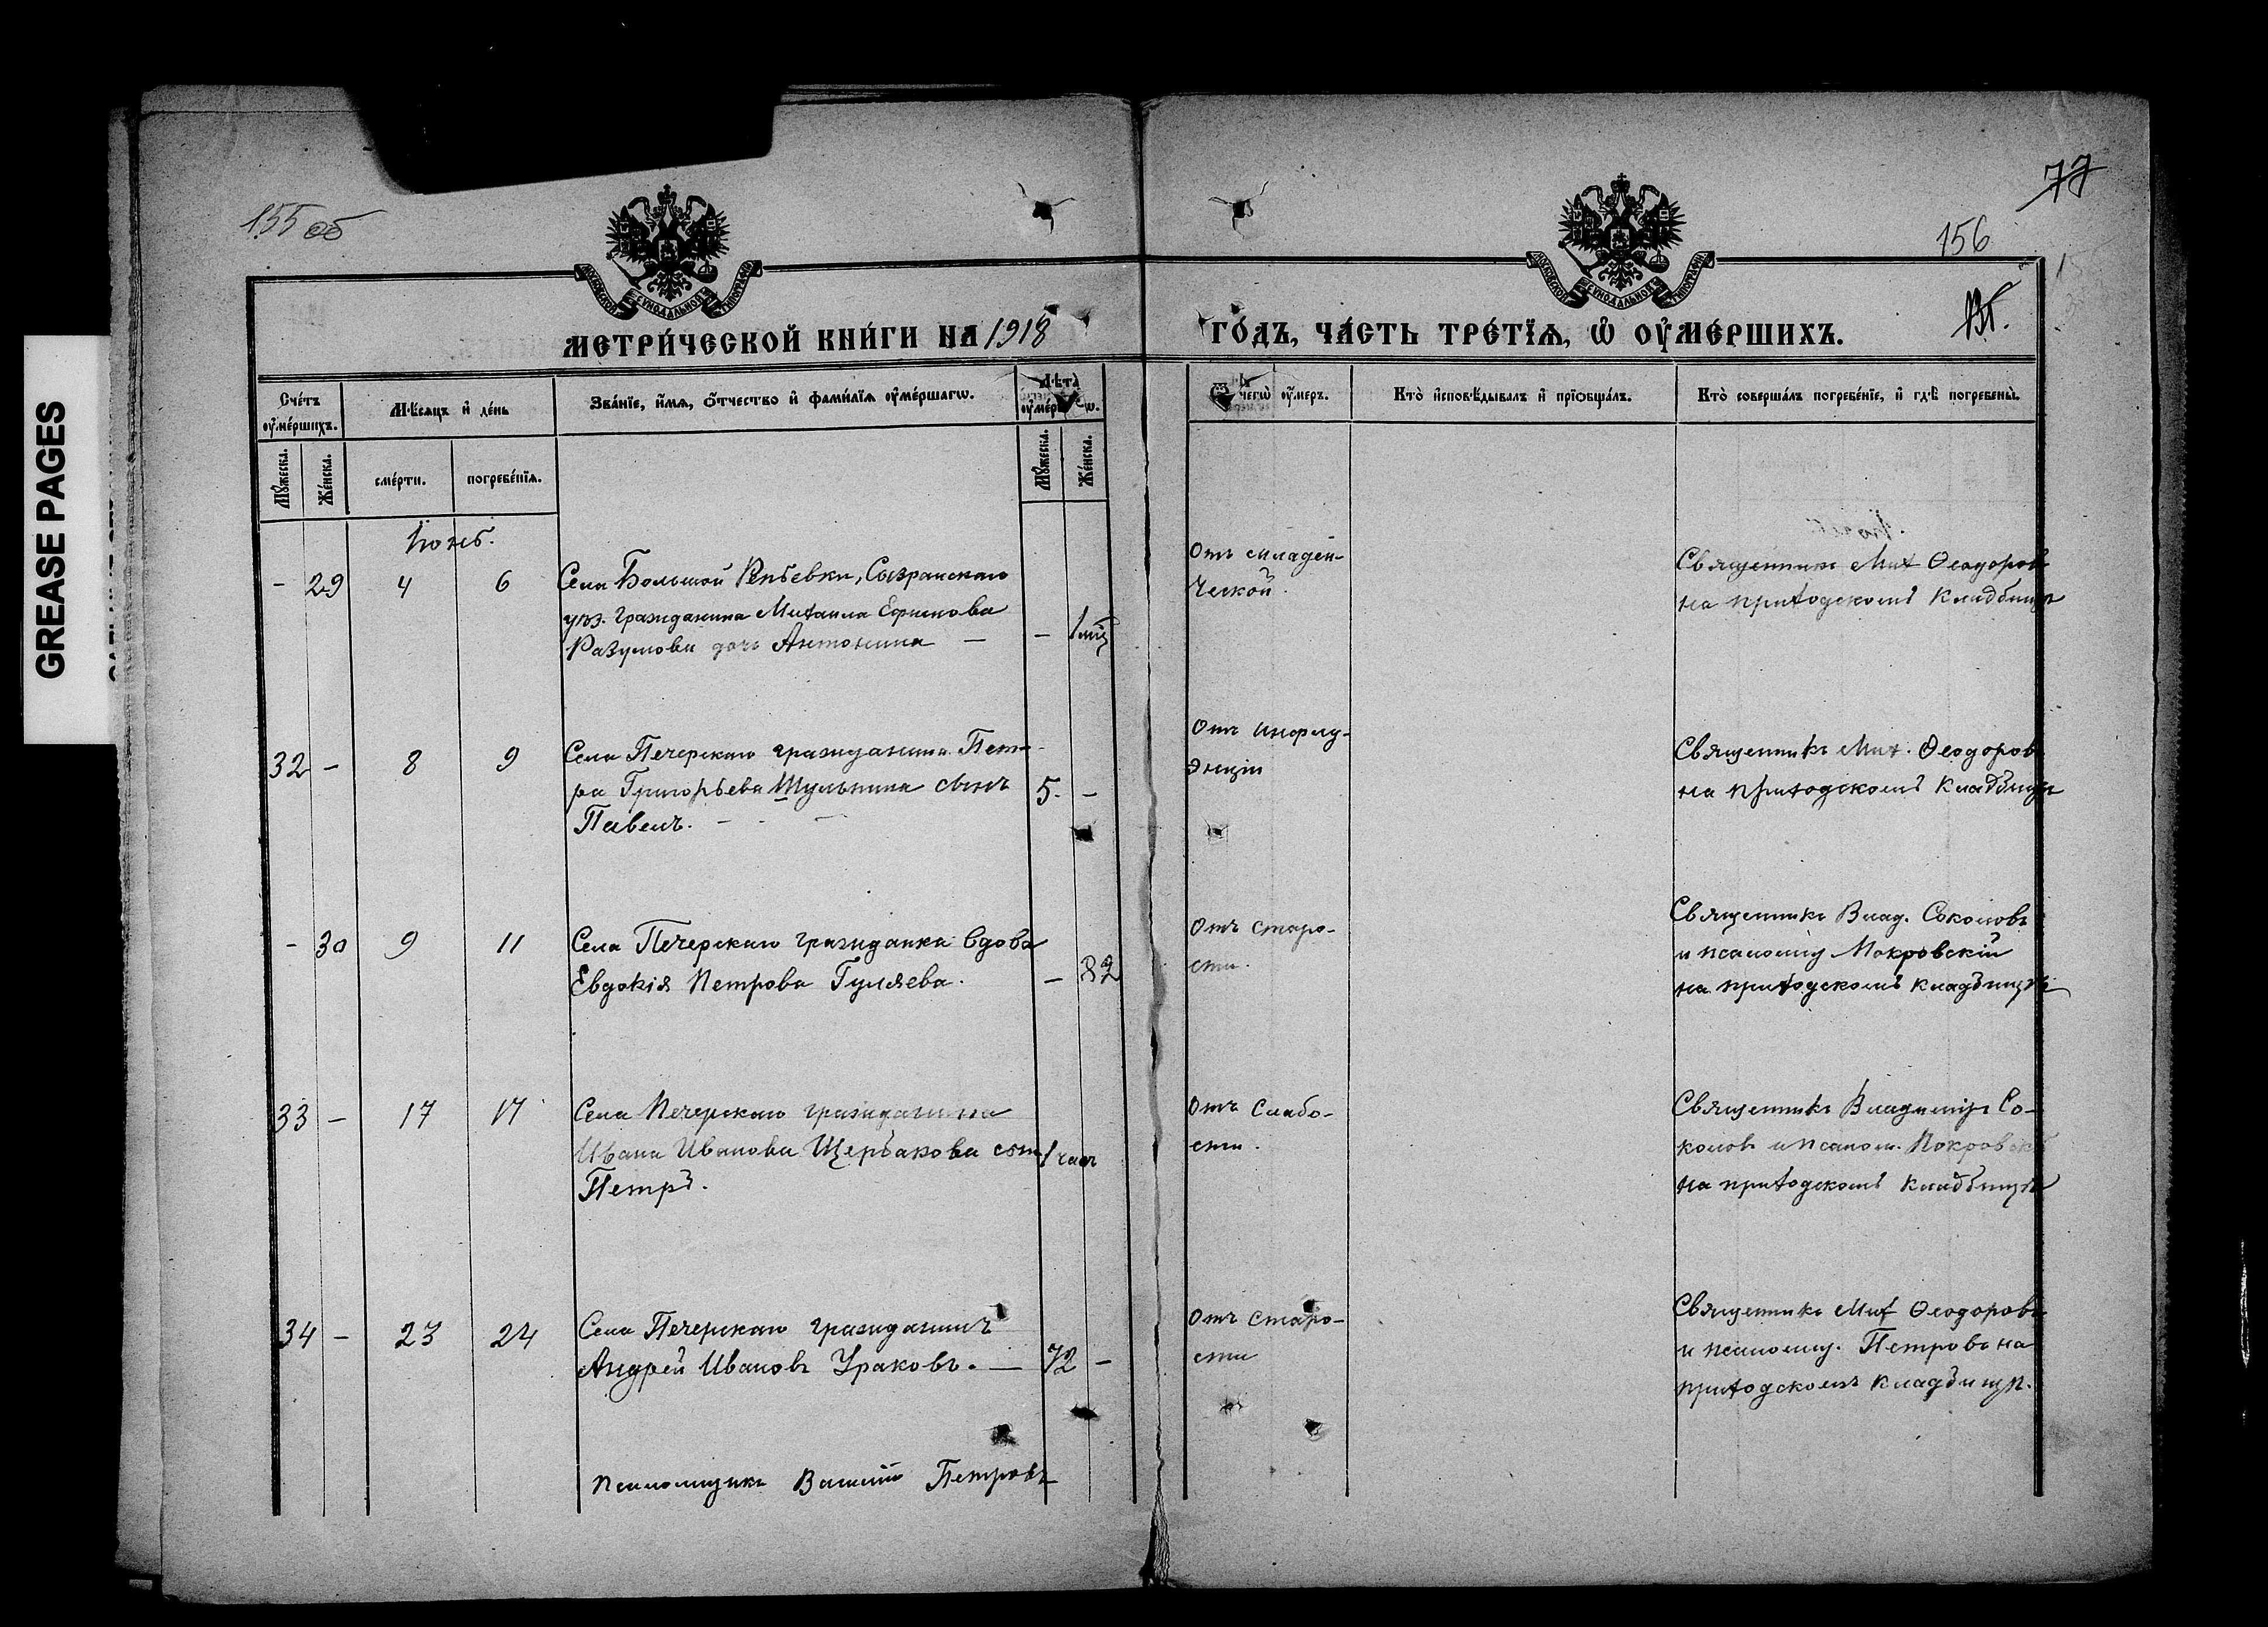 GREASE PAGES
155 об
77
156
МЕТРИ́ЧЕСКОЙ КНИ́ГИ НА 1918
ГО́ДЪ, ЧА́СТЬ ТРЕ́ТЇѦ, Ѽ ОУ҆МЕ́РШИХЪ.
Сче́тъ оу҆ме́ршихъ.
Мѣ́сяцъ и҆ де́нь
Зва́нїе, и҆́мѧ, ѻ҆́тчество и҆ фами́лїѧ оу҆ме́ршагѡ.
Лѣта̀
Мꙋ́жеска.
Же́нска.
сме́рти.
погребе́нїѧ.
Мꙋ́жеска.
Же́нска.
чегѡ̀ оу҆́меръ.
Кто̀ и҆сповѣ́дывалъ и҆ прїѻбща́лъ.
Кто̀ соверша́лъ погребе́нїе, и҆ гдѣ̀ погребены̀.
Іюнь.
- 29 4 6
Села Большой Репьевки, Сызранскаго
уѣз. гражданина Михаила Ефимова
Разумова дочь Антонина —
- 1 мѣс
Отъ младен-
ческой.
Священникъ Мих Ѳеодоровъ
на приходскомъ кладбищѣ
32 - 8 9
Села Печерскаго гражданина Пет-
ра Григорьева Шульпина сынъ
Павелъ. - - -
5. -
Отъ инфлу-
энціи
Священникъ Мих. Ѳеодоровъ
на приходскомъ кладбищѣ
- 30 9 11
Села Печерскаго гражданка вдова
Евдокія Петрова Гуляева.
- 82
Отъ старо-
сти.
Священникъ Влад. Соколовъ
и псаломщ Покровскій
на приходскомъ кладбищѣ
33 - 17 17
Села Печерскаго гражданина
Ивана Иванова Щербакова сын
Петръ.
1 часъ
Отъ слабо-
сти.
Священникъ Владиміръ Со-
коловъ и псалом. Покровскі
на приходскомъ кладбищѣ
34 - 23 24
Села Печерскаго гражданинъ
Андрей Ивановъ Ураковъ. —
72 -
Отъ старо-
сти
Священникъ Мих Ѳеодоровъ
и псаломщ. Петровъ на
приходскомъ кладбищѣ.
Псаломщикъ Василій Петровъ